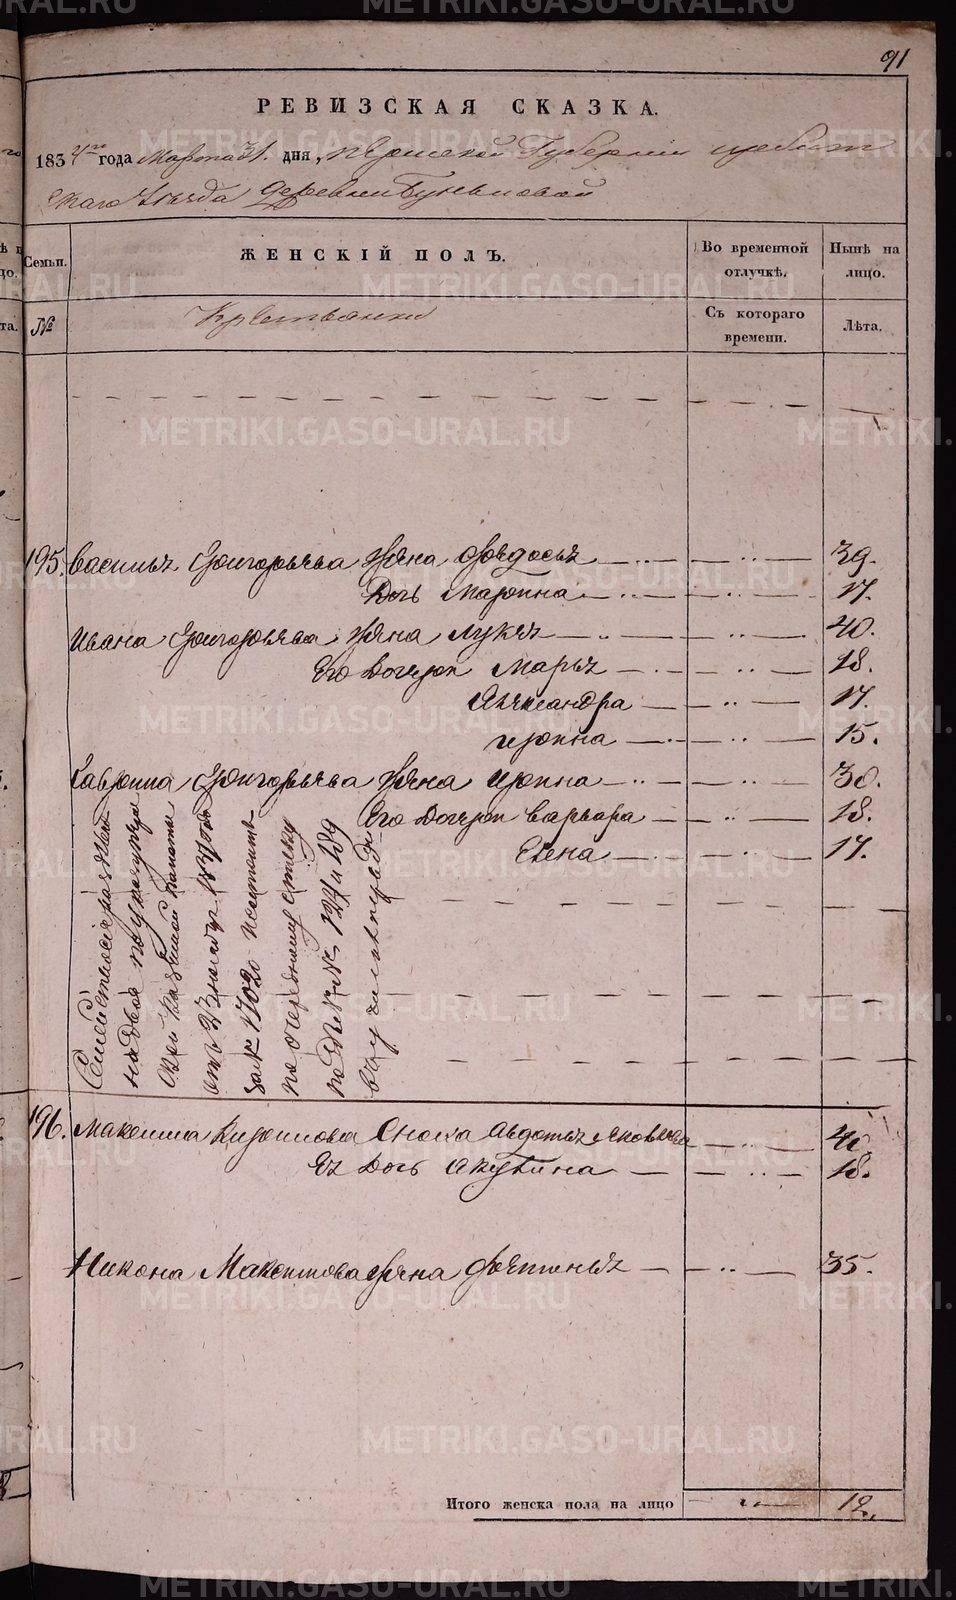 91
РЕВИЗСКАЯ СКАЗКА.
1834го года Марта 31. дня, Пермской Губернии Ирбит
скаго Уезда Деревни Буньковой
Семьи. ЖЕНСКІЙ ПОЛЪ. Во временной отлучкѣ. Нынѣ на лицо.
№ Крестьянки Съ котораго времени. Лѣта.
195. Василья Григорьева жена Федосья 39.
Дочь Марина 17.
Ивана Григорьева жена Лукья 40.
Его Дочери Марья 18.
Александра 17.
Ирина 15.
Гаврила Григорьева жена Ирина 30.
Его Дочери Варвара 18.
Елена 17.
Семейство сие разделено
на двое по указу
Казенной палаты
от 23
за № 1702
по очередному списку
под № № 124 и 289
196. Максима Кирилова Сноха Авдотья Яковлева 40.
Ея Дочь Акулина 18.
Никона Максимова жена Фетинья 35.
Итого женска пола на лицо 12.
METRIKI.GASO-URAL.RU